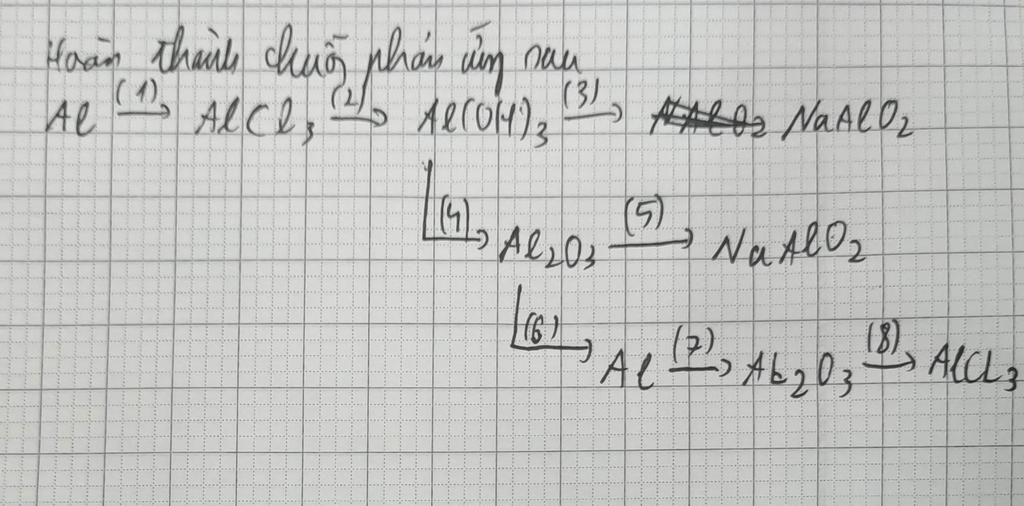 Hoàn thành chuỗi phản ứng sau
Al (1)→ AlCl₃ (2)→ Al(OH)₃ (3)→ NaAlO₂
(4)→ Al₂O₃ (5)→ NaAlO₂
(6)→ Al (7)→ Al₂O₃ (8)→ AlCl₃